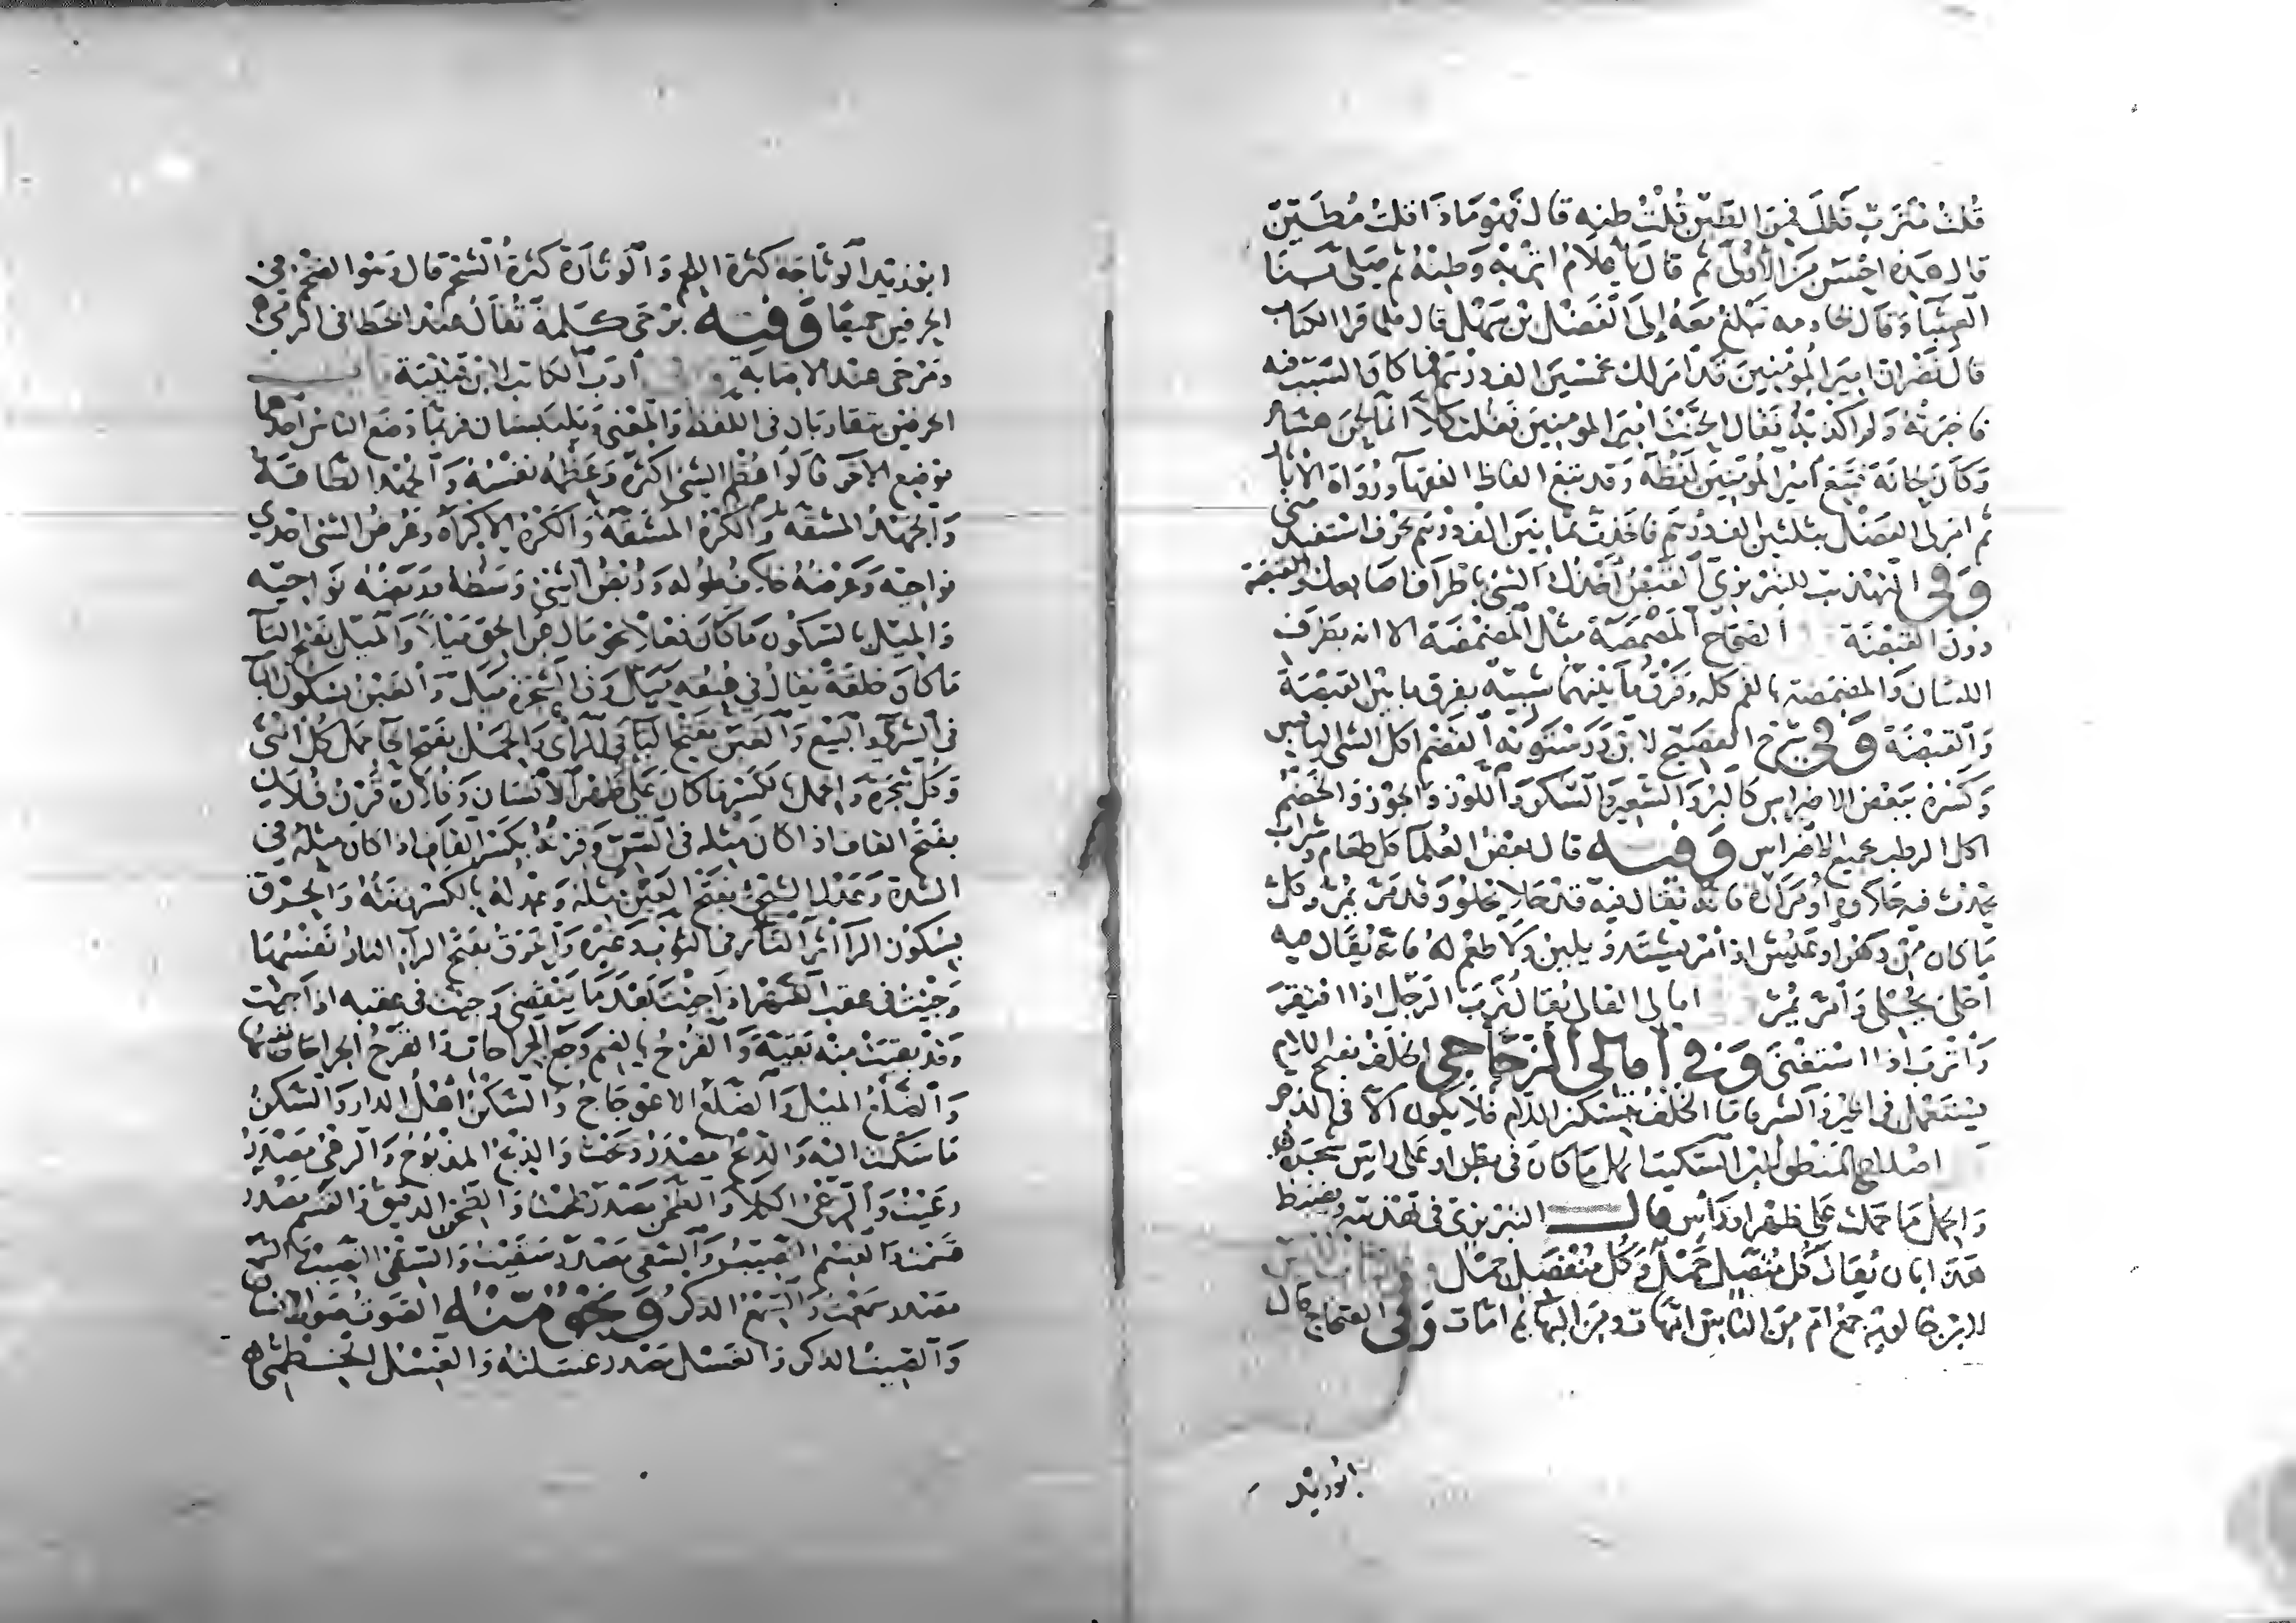 قُلتُ مُتَرَبٌ قال فمِنَ الطِّين قُلتُ طِنهُ قال فهو مَاذَا قلتُ مُطَيَّن
قال هذه احْسَن مِنَ الأولَى ثم قال يا غلامُ اتْرِبْهُ وَطِنْهُ ثم صَلّى بنَا
العِشَآءَ وَقَال لخادمه تبلغ مَعَهُ إِلَى الْفَضْل بْن سَهْل قال فلما قرا الكتاب
قال يَا نَضْر ان امير المُؤمِنِين قَد امَر لك بخمسين الف درهَم فما كان السبب فيه
فاخبرته ولم اكذبه فقال الحَّنت امير المومنين فقلت كلا انما لحن هشيم
وَكان لحانة فتبع أمير المُؤمنين لفظه وقد تتبع الفاظ الفقهآ ورُوَاة الآثار
ثم امر لي الفضل بثلثين الف درهم فاخذت ثمانين الف درهم بحرف استفيد مني
وَفى التهذيب للتبريزي القبص أَخْذك الشئ باطراف اصابعك والقبصة
دون القبضة الصحَاح المَصْمَصَة مثل المضمضة الا انه بطرف
اللسَان وَالمضمضة بالفم كله وفرق ما بينهما شبيه بفرق ما بين القبصَة
وَالقبضَة وَفي شرح الفصيح لابن دَرستويه القضم اكل الشئ اليابس
وَكسره ببعض الاضراس كالبُر والشعير والسكر وَاللوز وَالجوز وَالخضم
اكل الرطب بجميع الاضراس وَفيه قال بعض العُلمآ كل طعَام وشراب
يحدث فيه حَلاوة أو مَرارة فانه يُقال فيه قد حَلا يحلو وَقد مَرَّ يمُرّ وكلّ
مَا كان من دَهْر او عيش او أمر يشتد وَيلين وَلا طعْم لهُ فانه يُقال فيه
أحلى يُحْلى وَأَمَرَّ يُمِرّ امالى القالي يُقال تَرِبَ الرجل اذا افتقرَ
وَأَتْرَبَ اذا اسْتَغنى وَفي أمالى الزجاجى الخلَف بفتح اللام
يستعمل في الخير وَالشر فاما الخَلْف بتسكين اللام فلا يكون الا في الذم
اصلاح المنطق لابن السكيت الحَمل ما كان في بطن او عَلى راس شجَرة
وَالحِمل ما حَملت عَلى ظهر او رَأس قال التبريزي في تهذيبه ويضبط
هذا بان يُقال كُل مُتصل حَمْل وَكُل مُنفصل حِمْل
لابن خالويه جمع ام مِن الناس امَّهات ومن البهَايم امّات وَفى الصحاح قال
ابو زيد
ابو زيد الوَثاجَة كثرة اللحم وَالوَثارة كثرة الشحم قال وهو الضخم في
الحرفين جميعًا وَفيه بَرْحَى كلمة تُقال عند الخطا في الرمى
وَمَرْحَى عند الاصَابة أدب الكاتب لابن قتيبة باب
الحرفين يتقاربان في اللفظ وَالمعنى وَيلتبسَان فربمَا وَضع الناس احدهما
موضع الاخر قالوا عُظْم الشئ اكثره وَعَظْمه نفسه وَالجُهد الطاقة
وَالجَهد المشقة وَالكُره المشقة وَالكَرْه الاكراه وعُرض الشئ احدى
نواحيه وَعَرضه خلاف طوله وَرُبُض الشئ وَسطه ورَبَضه نواحيه
وَالمَيْل بالسكون مَا كانَ فعلا نحو مَال عَن الحق مَيلاً وَالمَيَل بفتح اليآ
مَا كان خلقة يُقال في عنُقه مَيَل وَفي الشجرة مَيل وَالغَبْن بسكون البآ
فى الشرآ والبَيْع وَالغَبَن بفتح البآ في الرأى وَالحَمْل بفتح الحآ حمل كل انثى
وَكل شجَرة وَالحِمل بالكسر ما كان عَلى ظهْر الانسَان وَفلان قَرْن فُلان
بفتح القاف اذا كان مثله في السِّن وَقِرنه بكسر القاف اذا كان مثله في
الشدة وَعَدْل الشئ بفتح العين مثله وَعِدله بالكسر زنته وَالحَرْق
بسكون الرآ اثر النار في الثوب وَغيره وَالحَرَق بفتح الرآ النار نفسها
وَجئت في عقب الشهر اذا جئت بَعْد مَا ينقضى وَجئت في عقبه اذا جئت
وَقد بقيت منه بقيّة وَالقُرح بالضم وجَع الجراحات وَالقَرح الجراحات نفسها
وَالضَلْع الميل وَالضَلَع الاعوجَاج وَالسَّكْن أهل الدار وَالسَّكَن
مَا سكنت اليه وَالذَبح مصْدر ذبحت وَالذِبح المذبُوح وَالرعي مصْدر
رعَيت وَالرِعي الكلأ وَالطحن مصْدر طحنت وَالطِحن الدقيق وَالقَسم مصدر
قسمت وَالقِسم النصيب وَالسقى مصْدر سقيت وَالسِقى النصيب وَالسَمع
مصدر سمعت وَالسِمع الذكر وَنَحْوٌ مِنْهُ الصَوت صَوت الانسان
وَالصِيت الذكر وَالغَسل مصْدر غسَلته وَالغِسل الخِطمى